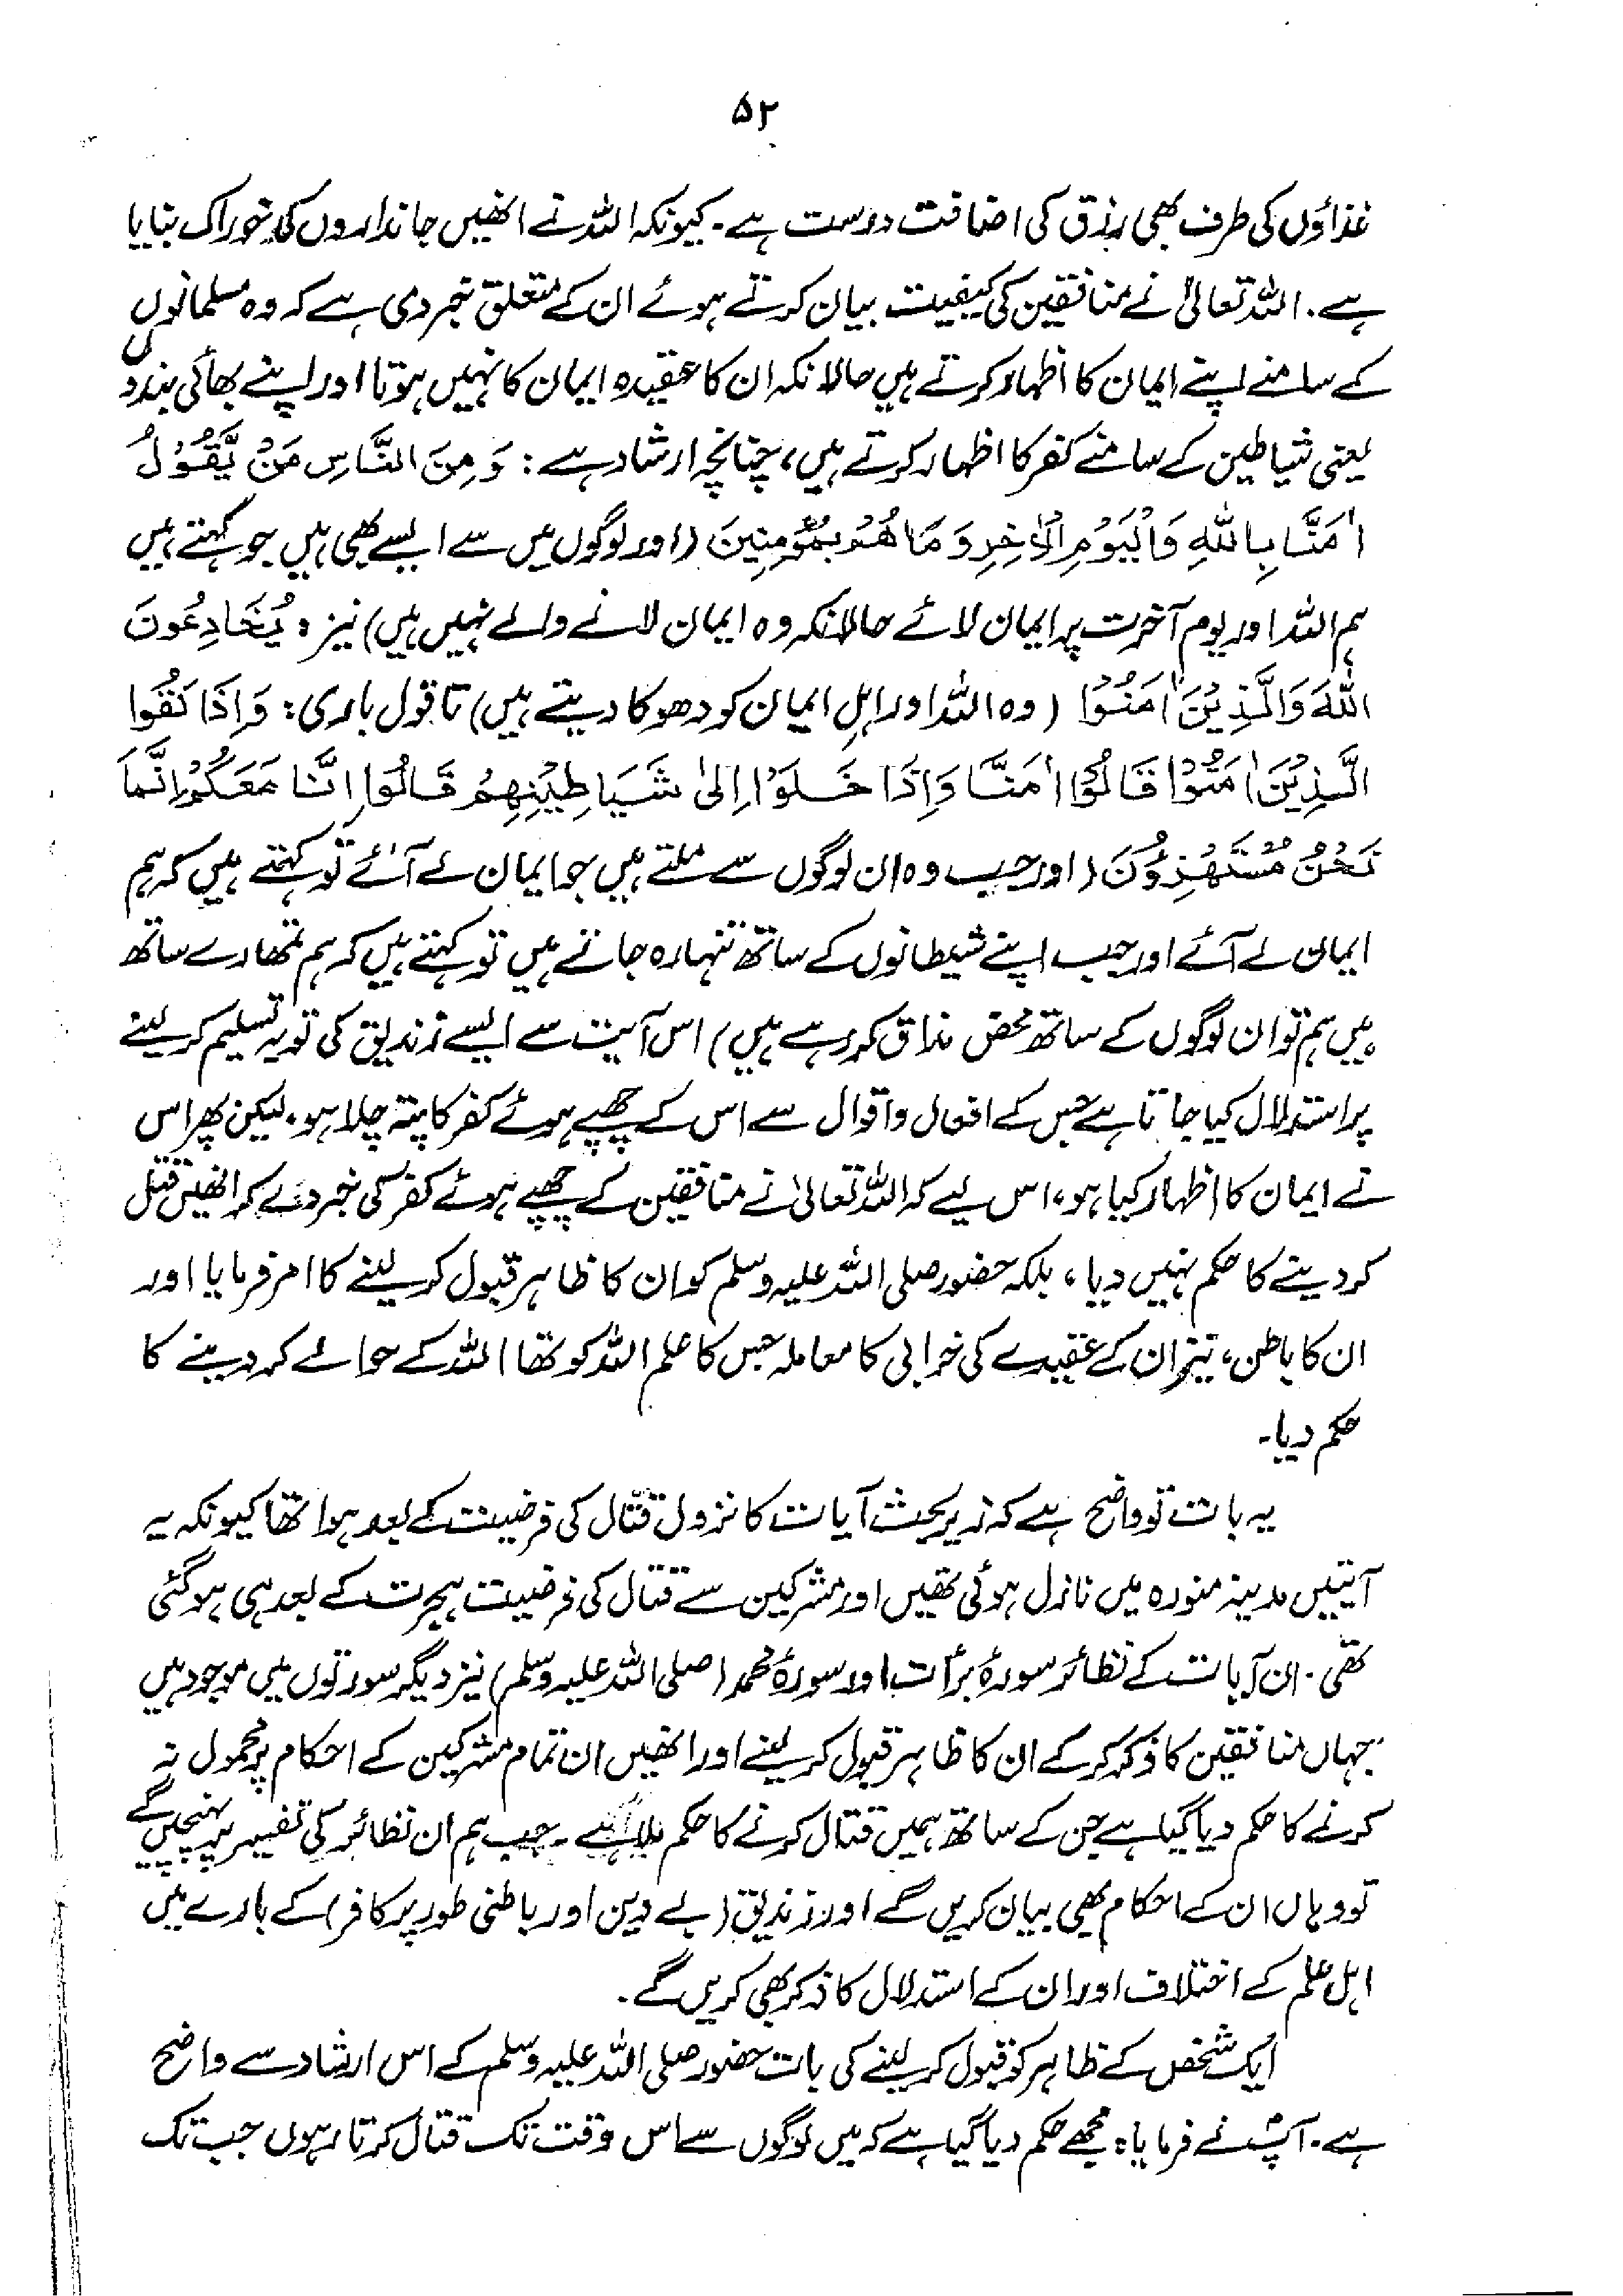 ۵۲
غذاؤں کی طرف بھی رزق کی اضافت درست ہے۔ کیونکہ اللہ نے انھیں جانداروں کی خوراک بنایا
ہے۔ اللہ تعالیٰ نے منافقین کی کیفیت بیان کرتے ہوئے ان کے متعلق خبر دی ہے کہ وہ مسلمانوں
کے سامنے اپنے ایمان کا اظہار کرتے ہیں حالانکہ ان کا عقیدہ ایمان کا نہیں ہوتا اور اپنے بھائی بندوں
یعنی شیاطین کے سامنے کفر کا اظہار کرتے ہیں، چنانچہ ارشاد ہے: وَمِنَ النَّاسِ مَنْ يَّقُوْلُ
اٰمَنَّا بِاللّٰهِ وَالْيَوْمِ الْاٰخِرِ وَمَا هُمْ بِمُؤْمِنِيْنَ (اور لوگوں میں سے ایسے بھی ہیں جو کہتے ہیں
ہم اللہ اور یوم آخرت پر ایمان لائے حالانکہ وہ ایمان لانے والے نہیں ہیں) نیز: يُخَادِعُونَ
اللّٰهَ وَالَّذِيْنَ اٰمَنُوْا (وہ اللہ اور اہلِ ایمان کو دھوکا دیتے ہیں) تا قول باری: وَاِذَا لَقُوا
الَّذِيْنَ اٰمَنُوْا قَالُوْا اٰمَنَّا وَاِذَا خَلَوْا اِلٰى شَيَاطِيْنِهِمْ قَالُوْا اِنَّا مَعَكُمْ اِنَّمَا
نَحْنُ مُسْتَهْزِؤُنَ (اور جب وہ ان لوگوں سے ملتے ہیں جو ایمان لے آئے تو کہتے ہیں کہ ہم
ایمان لے آئے اور جب اپنے شیطانوں کے ساتھ تنہا رہ جاتے ہیں تو کہتے ہیں کہ ہم تمھارے ساتھ
ہیں ہم تو ان لوگوں کے ساتھ محض مذاق کر رہے ہیں) اس آیت سے ایسے زندیق کی توبہ تسلیم کر لینے
پر استدلال کیا جاتا ہے جس کے افعال واقوال سے اس کے چھپے ہوئے کفر کا پتہ چلا ہو۔ لیکن پھر اس
نے ایمان کا اظہار کیا ہو، اس لیے کہ اللہ تعالیٰ نے منافقین کے چھپے ہوئے کفر کی خبر دے کر انھیں قتل
کر دینے کا حکم نہیں دیا، بلکہ حضور صلی اللہ علیہ وسلم کو ان کا ظاہر قبول کر لینے کا امر فرمایا اور
ان کا باطن، نیز ان کے عقیدے کی خرابی کا معاملہ جس کا علم اللہ کو تھا اللہ کے حوالے کر دینے کا
حکم دیا۔
یہ بات تو واضح ہے کہ زیر بحث آیات کا نزول قتال کی فرضیت کے بعد ہوا تھا کیونکہ یہ
آیتیں مدینہ منورہ میں نازل ہوئی تھیں اور مشرکین سے قتال کی فرضیت ہجرت کے بعد ہی ہو گئی
تھی۔ ان آیات کے نظائر سورۂ برأت اور سورۂ محمد (صلی اللہ علیہ وسلم) نیز دیگر سورتوں میں موجود ہیں
جہاں منافقین کا ذکر کر کے ان کا ظاہر قبول کر لینے اور انھیں ان تمام مشرکین کے احکام پر محمول نہ
کرنے کا حکم دیا گیا ہے جن کے ساتھ ہمیں قتال کرنے کا حکم ملا ہے۔ جب ہم ان نظائر کی تفسیر پر پہنچیں گے
تو وہاں ان کے احکام بھی بیان کریں گے اور زندیق (بے دین اور باطنی طور پر کافر) کے بارے میں
اہل علم کے اختلاف اور ان کے استدلال کا ذکر بھی کریں گے۔
ایک شخص کے ظاہر کو قبول کر لینے کی بات حضور صلی اللہ علیہ وسلم کے اس ارشاد سے واضح
ہے۔ آپؐ نے فرمایا: مجھے حکم دیا گیا ہے کہ میں لوگوں سے اس وقت تک قتال کرتا رہوں جب تک